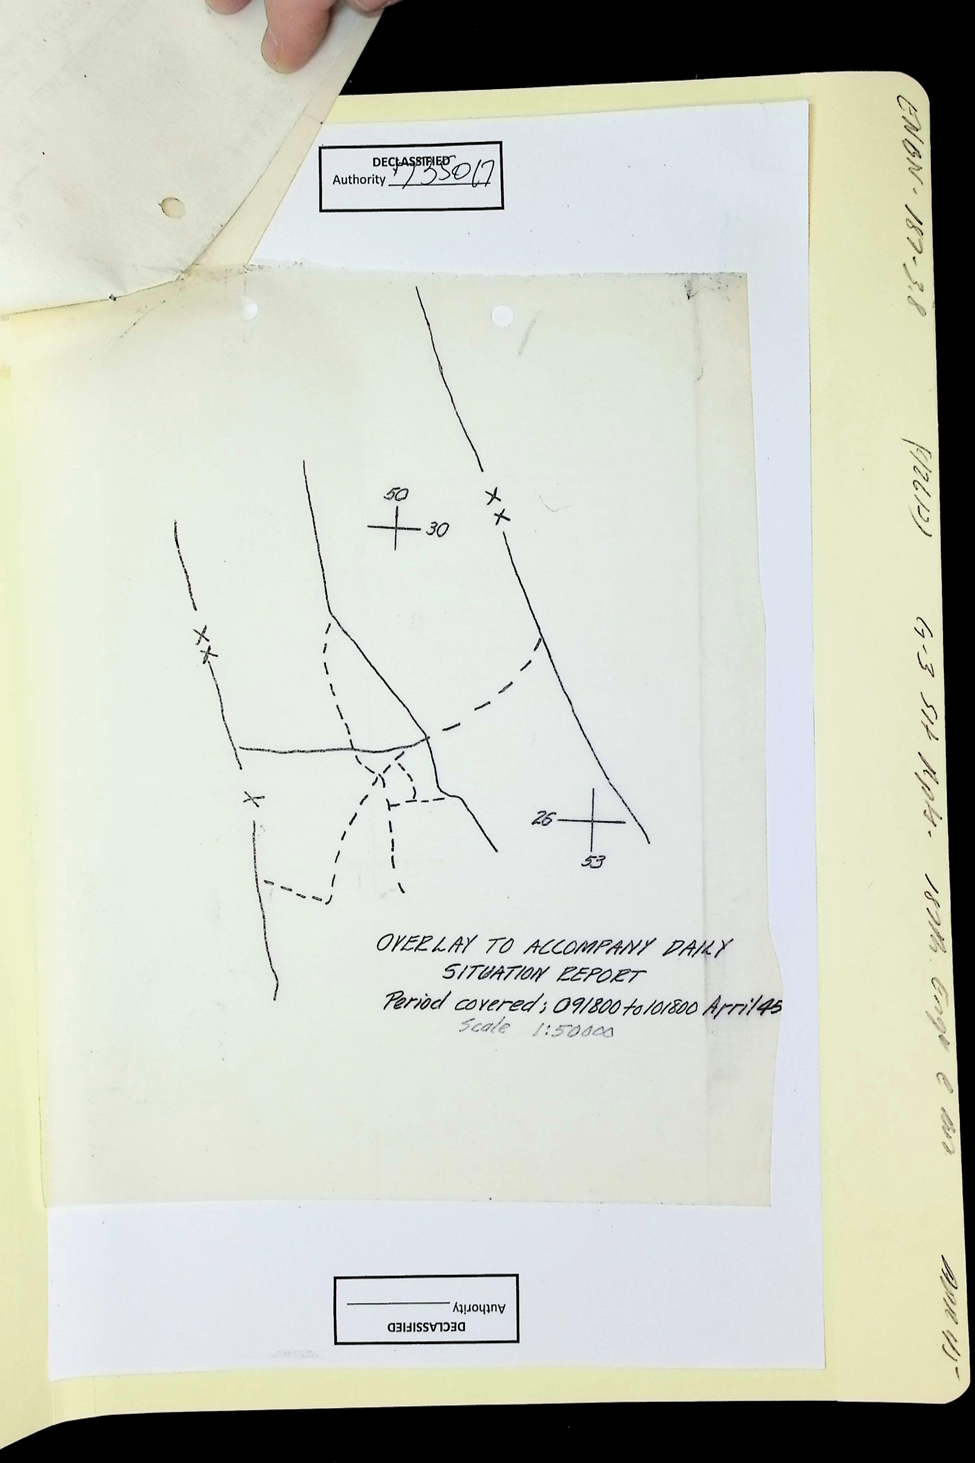 DECLASSIFIED
Authority 735017
50
30
26
53
OVERLAY TO ACCOMPANY DAILY
SITUATION REPORT
Period covered; 091800 to 101800 April 45
Scale 1:50000
Authority
DECLASSIFIED
ENGN-187-3.8 G-3 Sit Rpts. 187th. Engr C